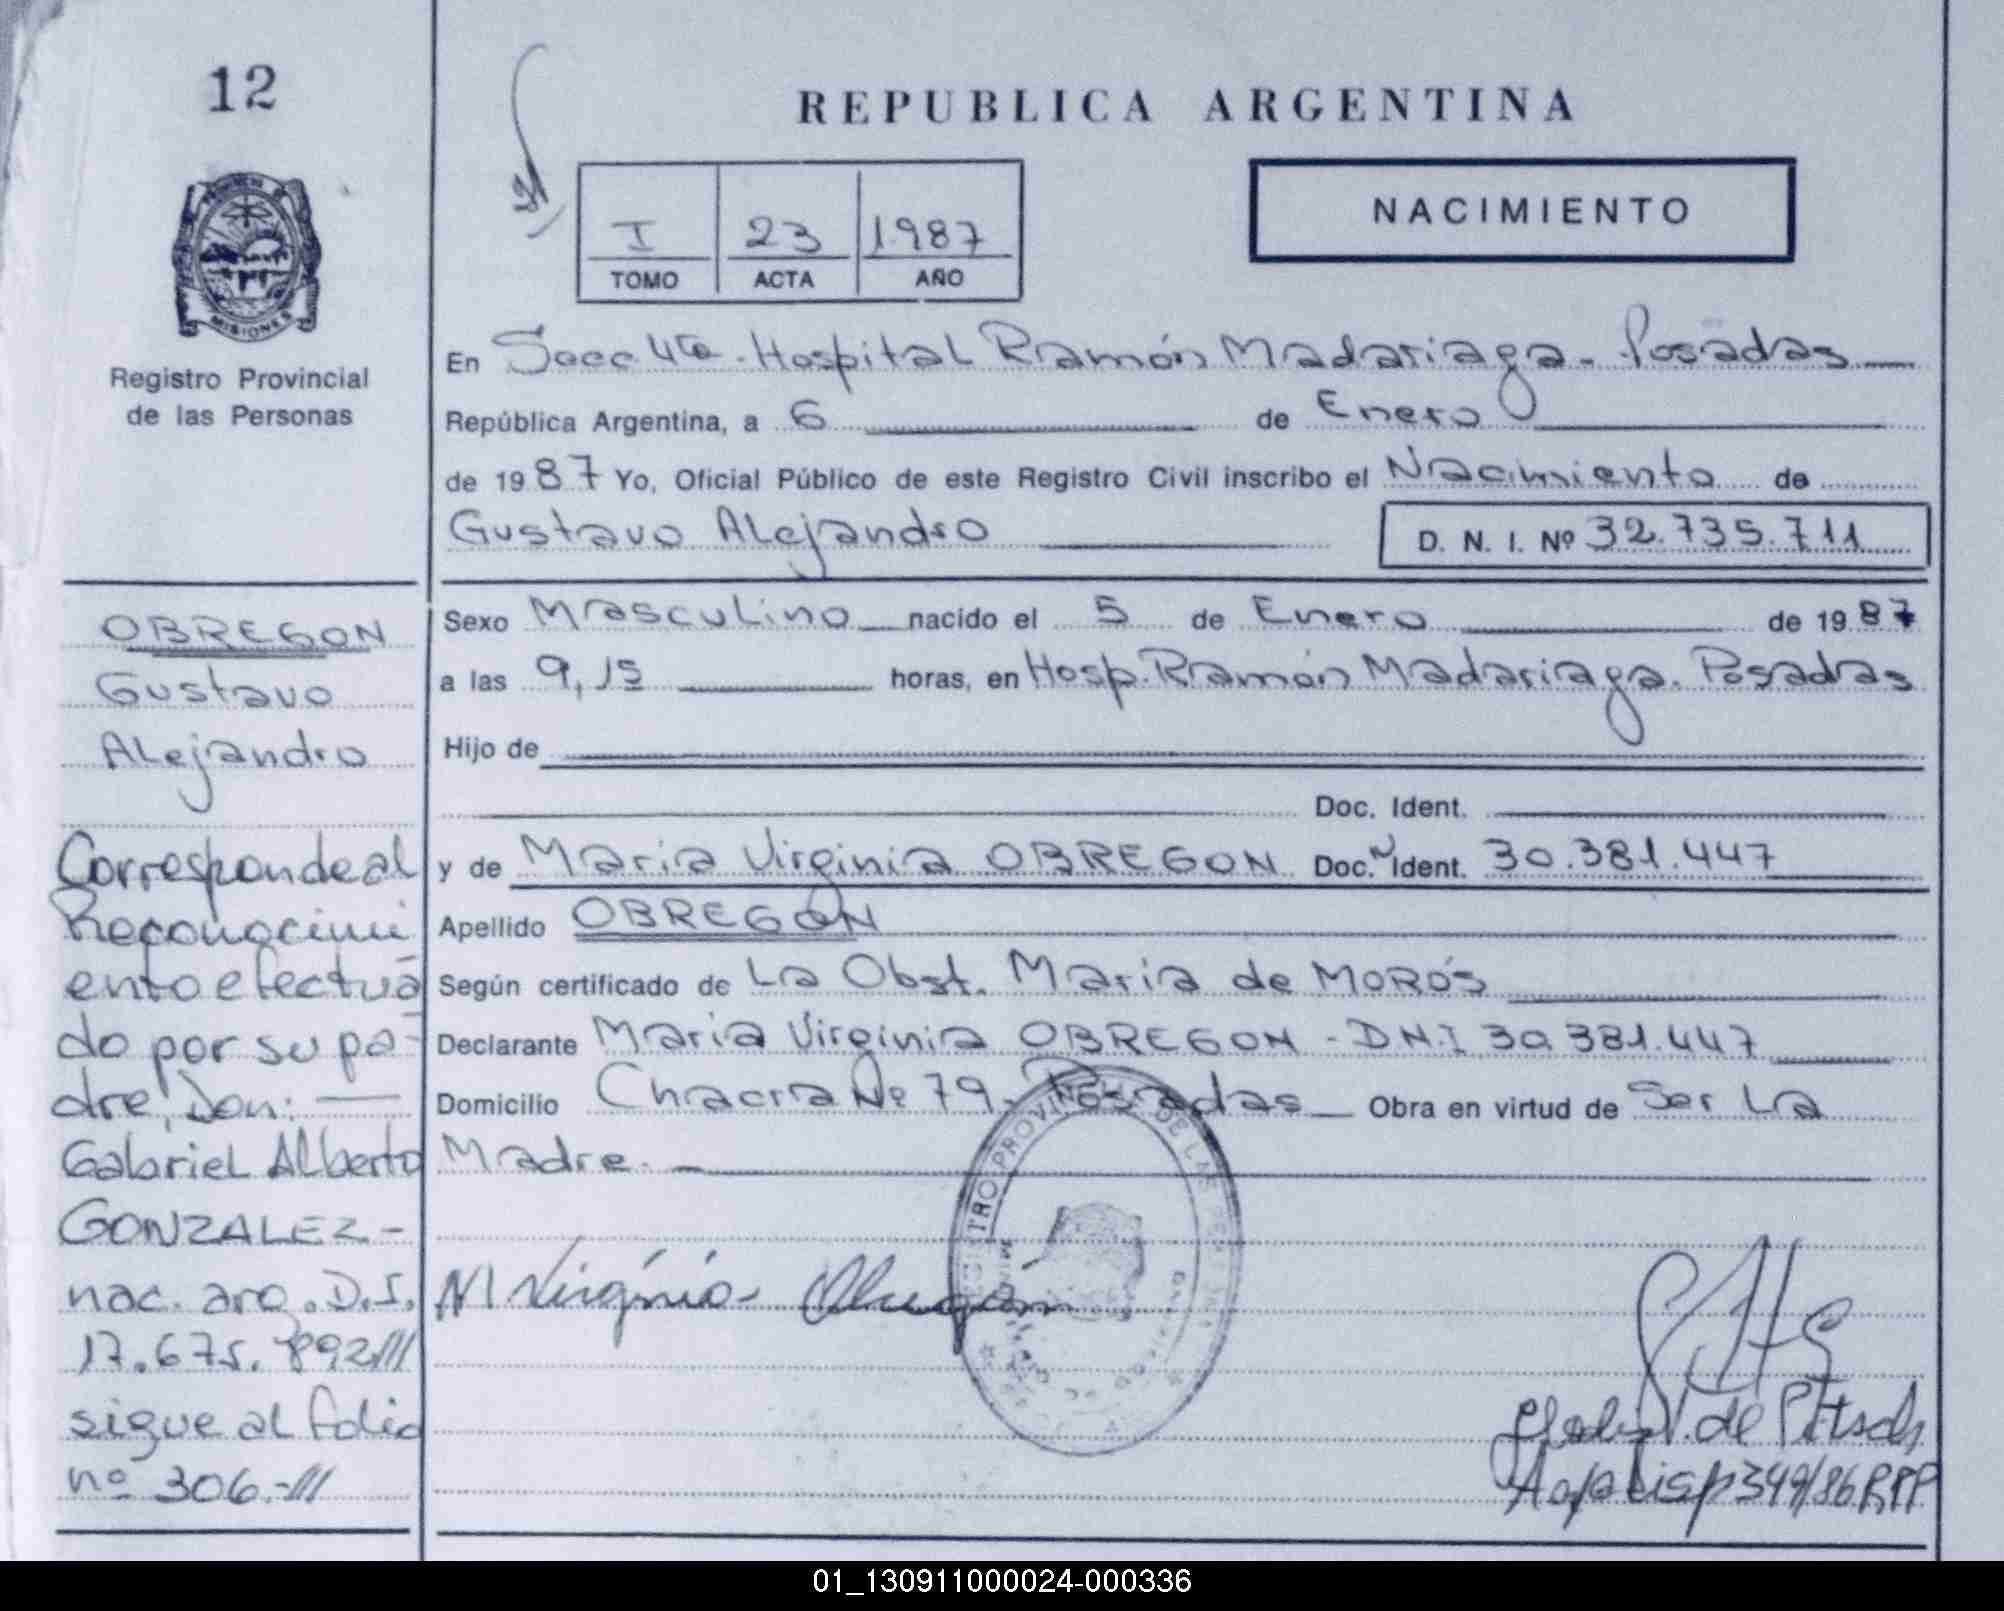 12
REPUBLICA ARGENTINA
NACIMIENTO
I 23 1987
TOMO ACTA AÑO
MISIONES
Registro Provincial
de las Personas
En Secc. 4ta. Hospital Ramón Madariaga. Posadas
República Argentina, a 6 de Enero
de 1987 Yo, Oficial Público de este Registro Civil inscribo el Nacimiento de
Gustavo Alejandro D. N. I. Nº 32.735.711
Sexo Masculino nacido el 5 de Enero de 1987
a las 9,15 horas, en Hosp. Ramón Madariaga. Posadas
Hijo de
Doc. Ident.
y de Maria Virginia OBREGON Doc. Ident. 30.381.447
Apellido OBREGON
Según certificado de La Obst. Maria de MOROS
Declarante Maria Virginia OBREGON - DNI 30.381.447
Domicilio Chacra Nº 79. Posadas Obra en virtud de Ser La
Madre.
M Virginia Obregón
de
349/86
OBREGON
Gustavo
Alejandro
Corresponde al
Reconocimi
ento efectua
do por su pa-
dre, Don:
Gabriel Alberto
GONZALEZ-
nac. arg. D.I.
17.675.892///
sigue al folio
nº 306.-///
01_130911000024-000336